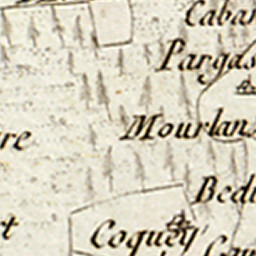 Caban
Pargas
re
Mourlan
Bedu
t
Coquey